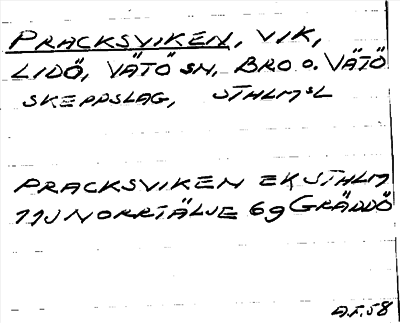 PRACKSVIKEN, VIK,
LIDÖ, VÄTÖ SN, BRO O. VÄTÖ
SKEPPSLAG, STHLMSL
PRACKSVIKEN EK STHLM
11J NORRTÄLJE 6g GRÄDDÖ
A.F. 58